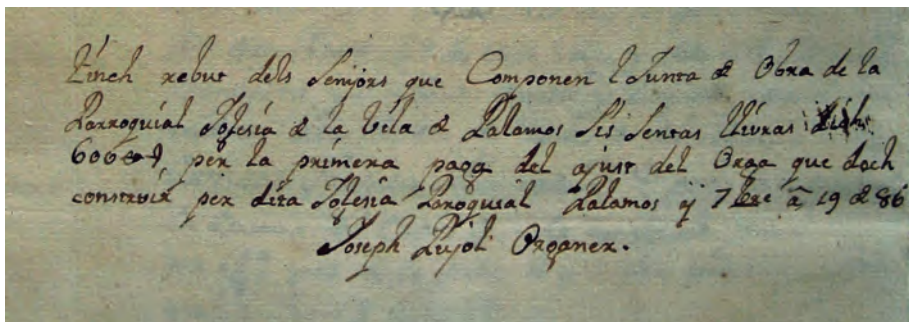 Tinch rebut dels Senyors que Componen l Junta de Obra de la
Parroquial Iglesia de la Vila de Palamos Sis Sentas Llivras
per la primera paga del ajust del Orga que dech
construir per dita Iglesia Paroquial Palamos y 7bre a 19 de 86
Joseph Pujol Organer.